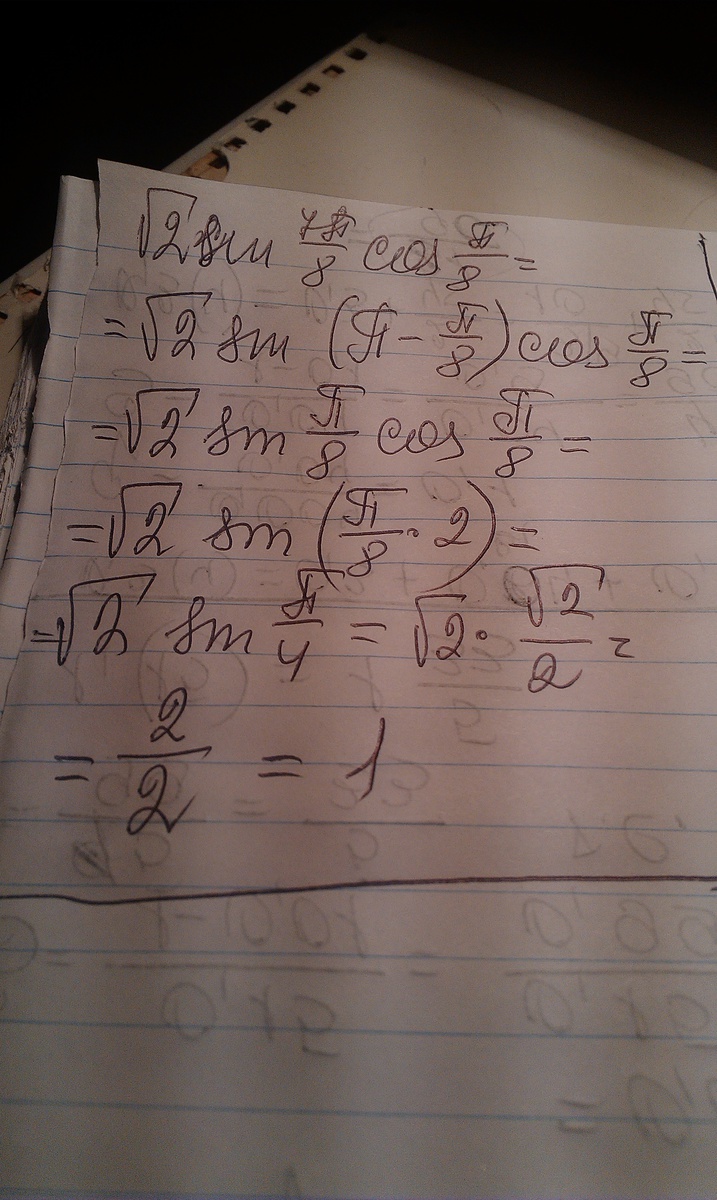 √2 sin 7π/8 cos π/8 =
= √2 sin (π - π/8) cos π/8 =
= √2 sin π/8 cos π/8 =
= √2 sin (π/8 · 2) =
= √2 sin π/4 = √2 · √2/2 =
= 2/2 = 1